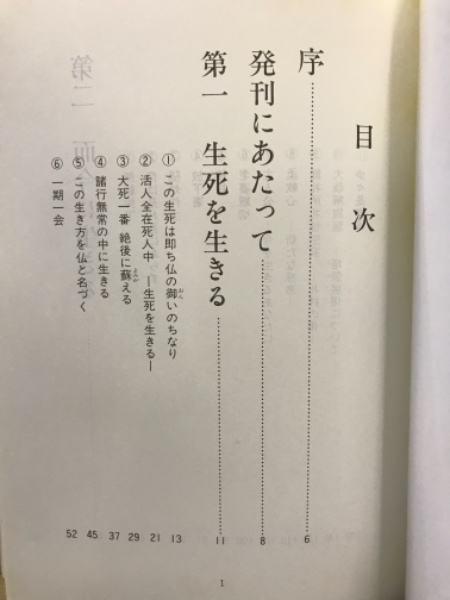 目次
序……6
発刊にあたって……8
第一 生死を生きる……11
① この生死は即ち仏の御いのちなり 13
② 活人全在死人中 ―生死を生きる― 21
③ 大死一番 絶後に蘇える 29
④ 諸行無常の中に生きる 37
⑤ この生き方を仏と名づく 45
⑥ 一期一会 52
1